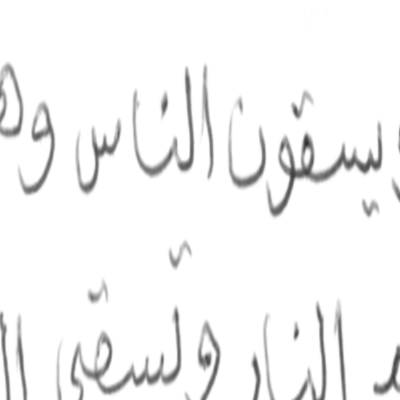 ويسقون الناس وه
النار ولسقى ال